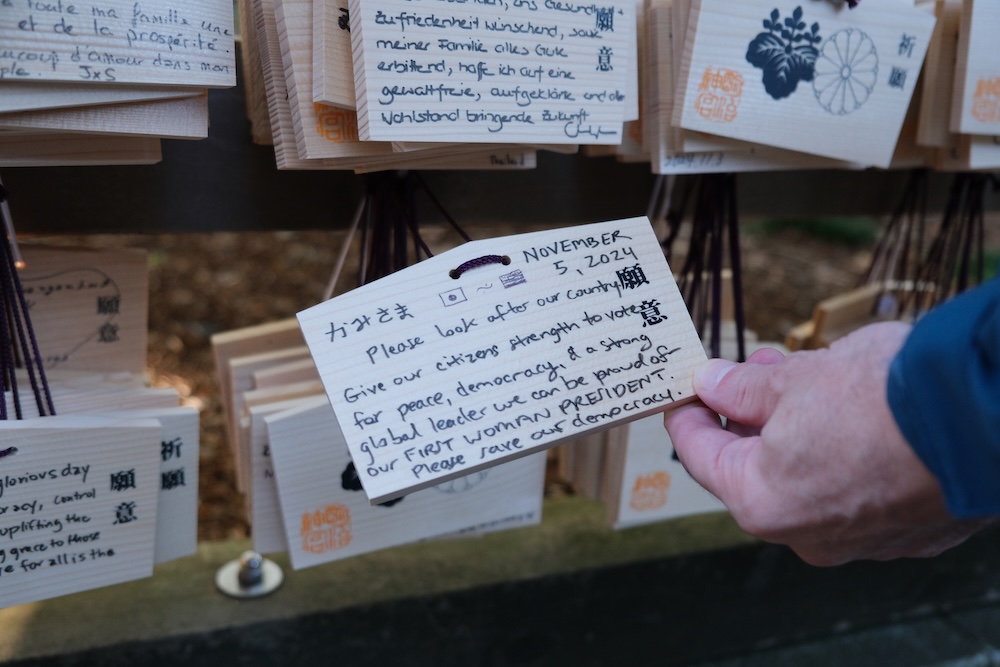 toute ma famille une
et de la prospérité.
beaucoup d'amour dans mon
J x S
Gesundheit
Zufriedenheit wünschend, sowie
meiner Familie alles Gute
erbittend, hoffe ich auf eine
gewaltfreie, aufgeklärte und
Wohlstand bringende Zukunft
願
意
祈
願
2024.11.3
NOVEMBER
5, 2024
かみさま
Please look after our country
Give our citizens strength to vote
for peace, democracy, & a strong
global leader we can be proud of-
our FIRST WOMAN PRESIDENT.
Please save our democracy.
願
意
願
意
祈
願
glorious day
control
uplifting the
grace to those
for all is the
願
意